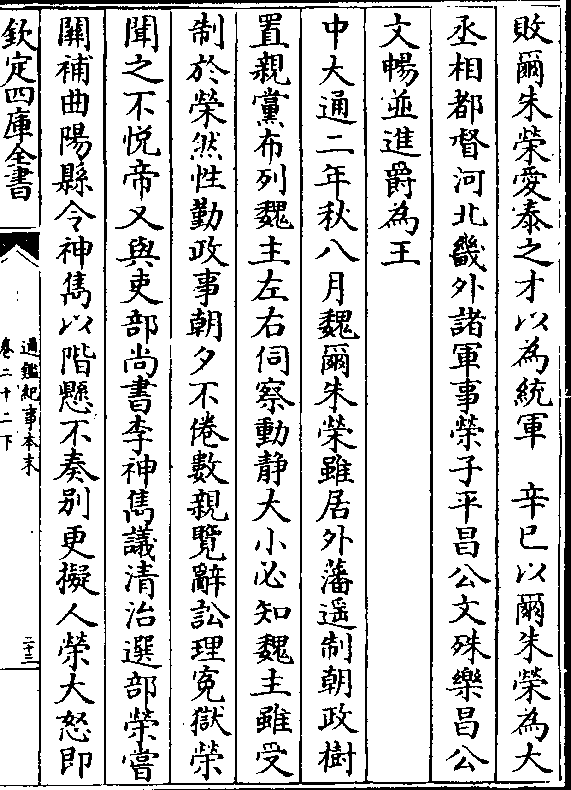 敗爾朱榮愛泰之才以為統軍　辛巳以爾朱榮為大
丞相都督河北畿外諸軍事榮子平昌公文殊樂昌公
文暢並進爵為王
中大通二年秋八月魏爾朱榮雖居外藩遥制朝政樹
置親黨布列魏主左右伺察動静大小必知魏主雖受
制於榮然性勤政事朝夕不倦數親覽辭訟理寃獄榮
聞之不悦帝又與吏部尚書李神雋議清治選部榮嘗
關補曲陽縣令神雋以階懸不奏别更擬人榮大怒即
欽定四庫全書
通鑑紀事本末
卷二十二下
二十三